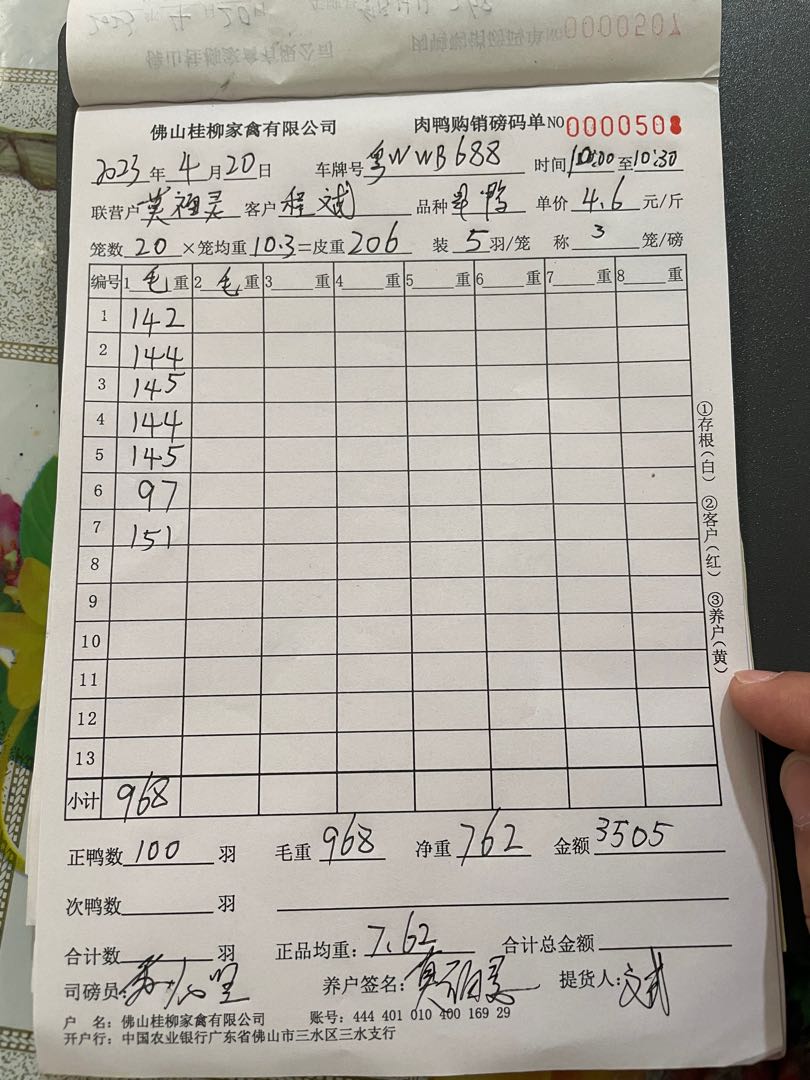 佛山桂柳家禽有限公司 肉鸭购销磅码单 NO 0000508
2023 年 4 月 20 日 车牌号 粤WWB688 时间 10:00 至 10:30
联营户 客户 程斌 品种 鸭 单价 4.6 元/斤
笼数 20 ×笼均重 10.3 =皮重 206 装 5 羽/笼 称 3 笼/磅
编号 1 毛 重 2 毛 重 3 重 4 重 5 重 6 重 7 重 8 重
1 142
2 144
3 145
4 144
5 145
6 97
7 151
8
9
10
11
12
13
小计 968
正鸭数 100 羽 毛重 968 净重 762 金额 3505
次鸭数 羽
合计数 羽 正品均重: 7.62 合计总金额
司磅员: 养户签名: 提货人: 斌
户 名: 佛山桂柳家禽有限公司 账号: 444 401 010 400 169 29
开户行: 中国农业银行广东省佛山市三水区三水支行
①存根(白) ②客户(红) ③养户(黄)